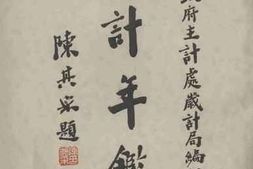 府主計處歲計局編
計年鑑
陳其采題